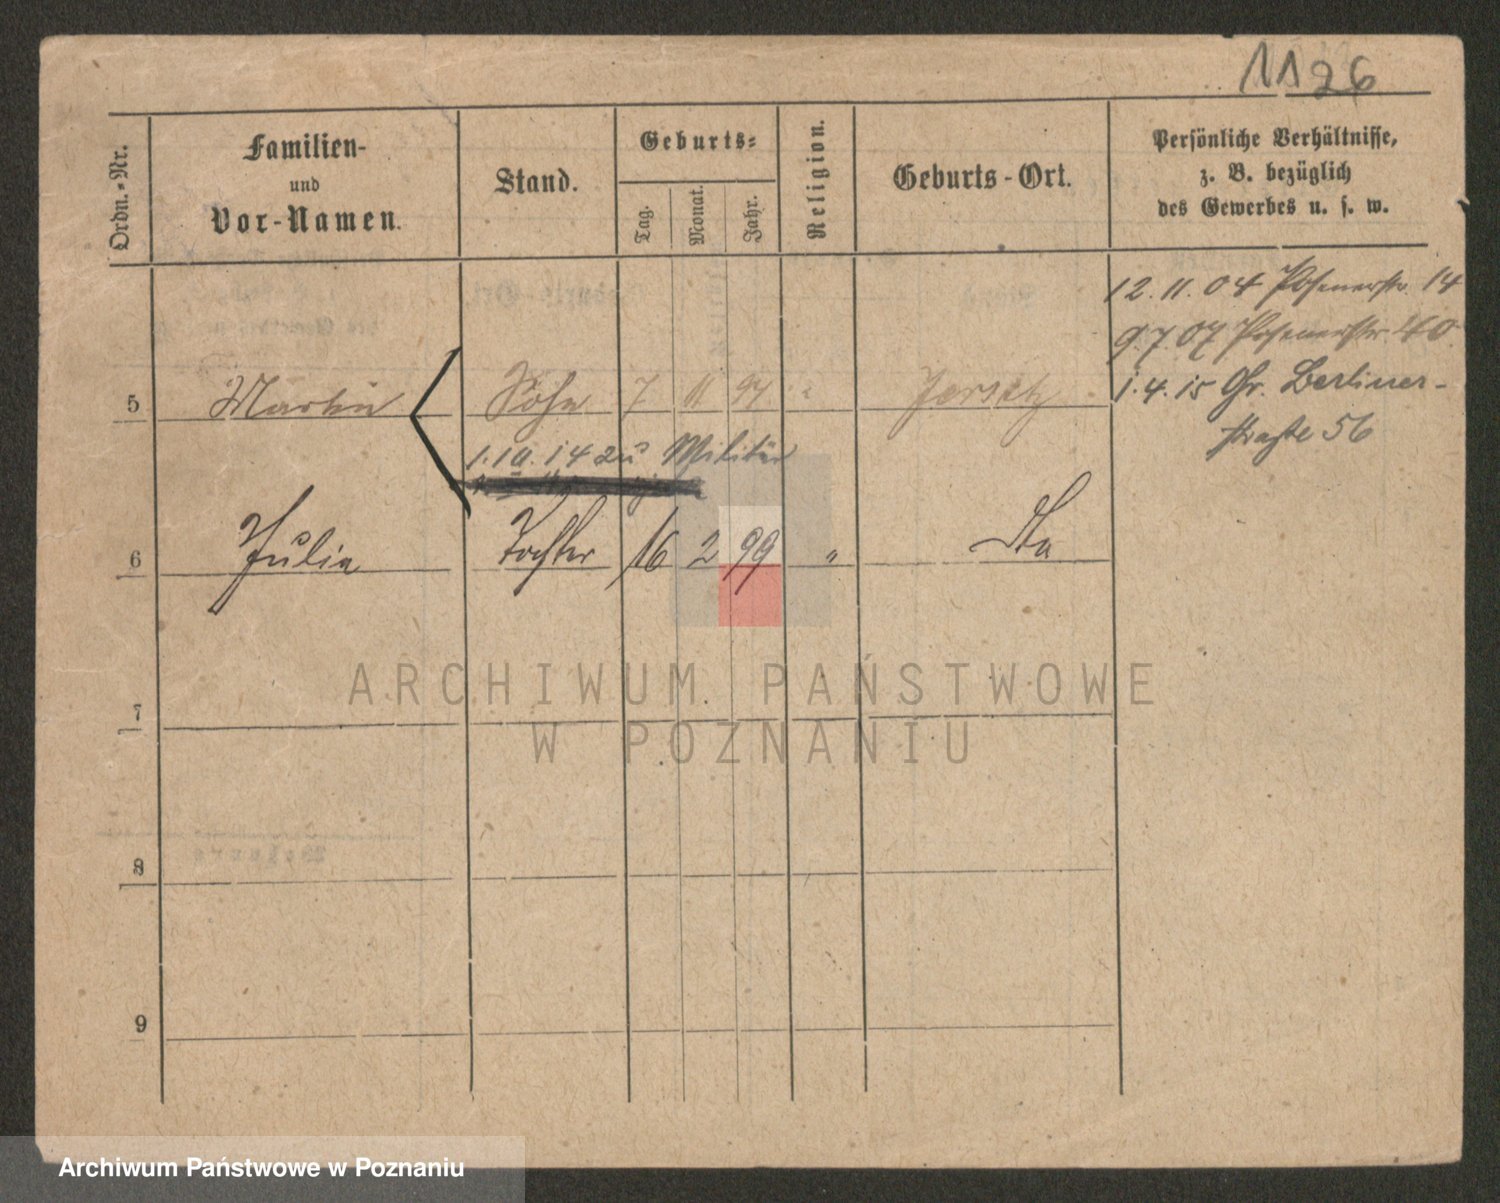 1126
Ordn.-Nr.
Familien-
und
Vor-Namen.
Stand.
Geburts-
Tag.
Monat.
Jahr.
Religion.
Geburts-Ort.
Persönliche Verhältnisse,
z. B. bezüglich
des Gewerbes u. s. w.
12.11.04 Posenerstr. 14
9.7.07 Posenerstr. 40.
5 Martin Sohn 7 11 94 " Jersitz
1.4.15 Gr. Berliner-
straße 56
1.10.14 zu Militär
6 Julia Tochter 16 2 99 "
7
8
9
ARCHIWUM PAŃSTWOWE
W POZNANIU
Archiwum Państwowe w Poznaniu